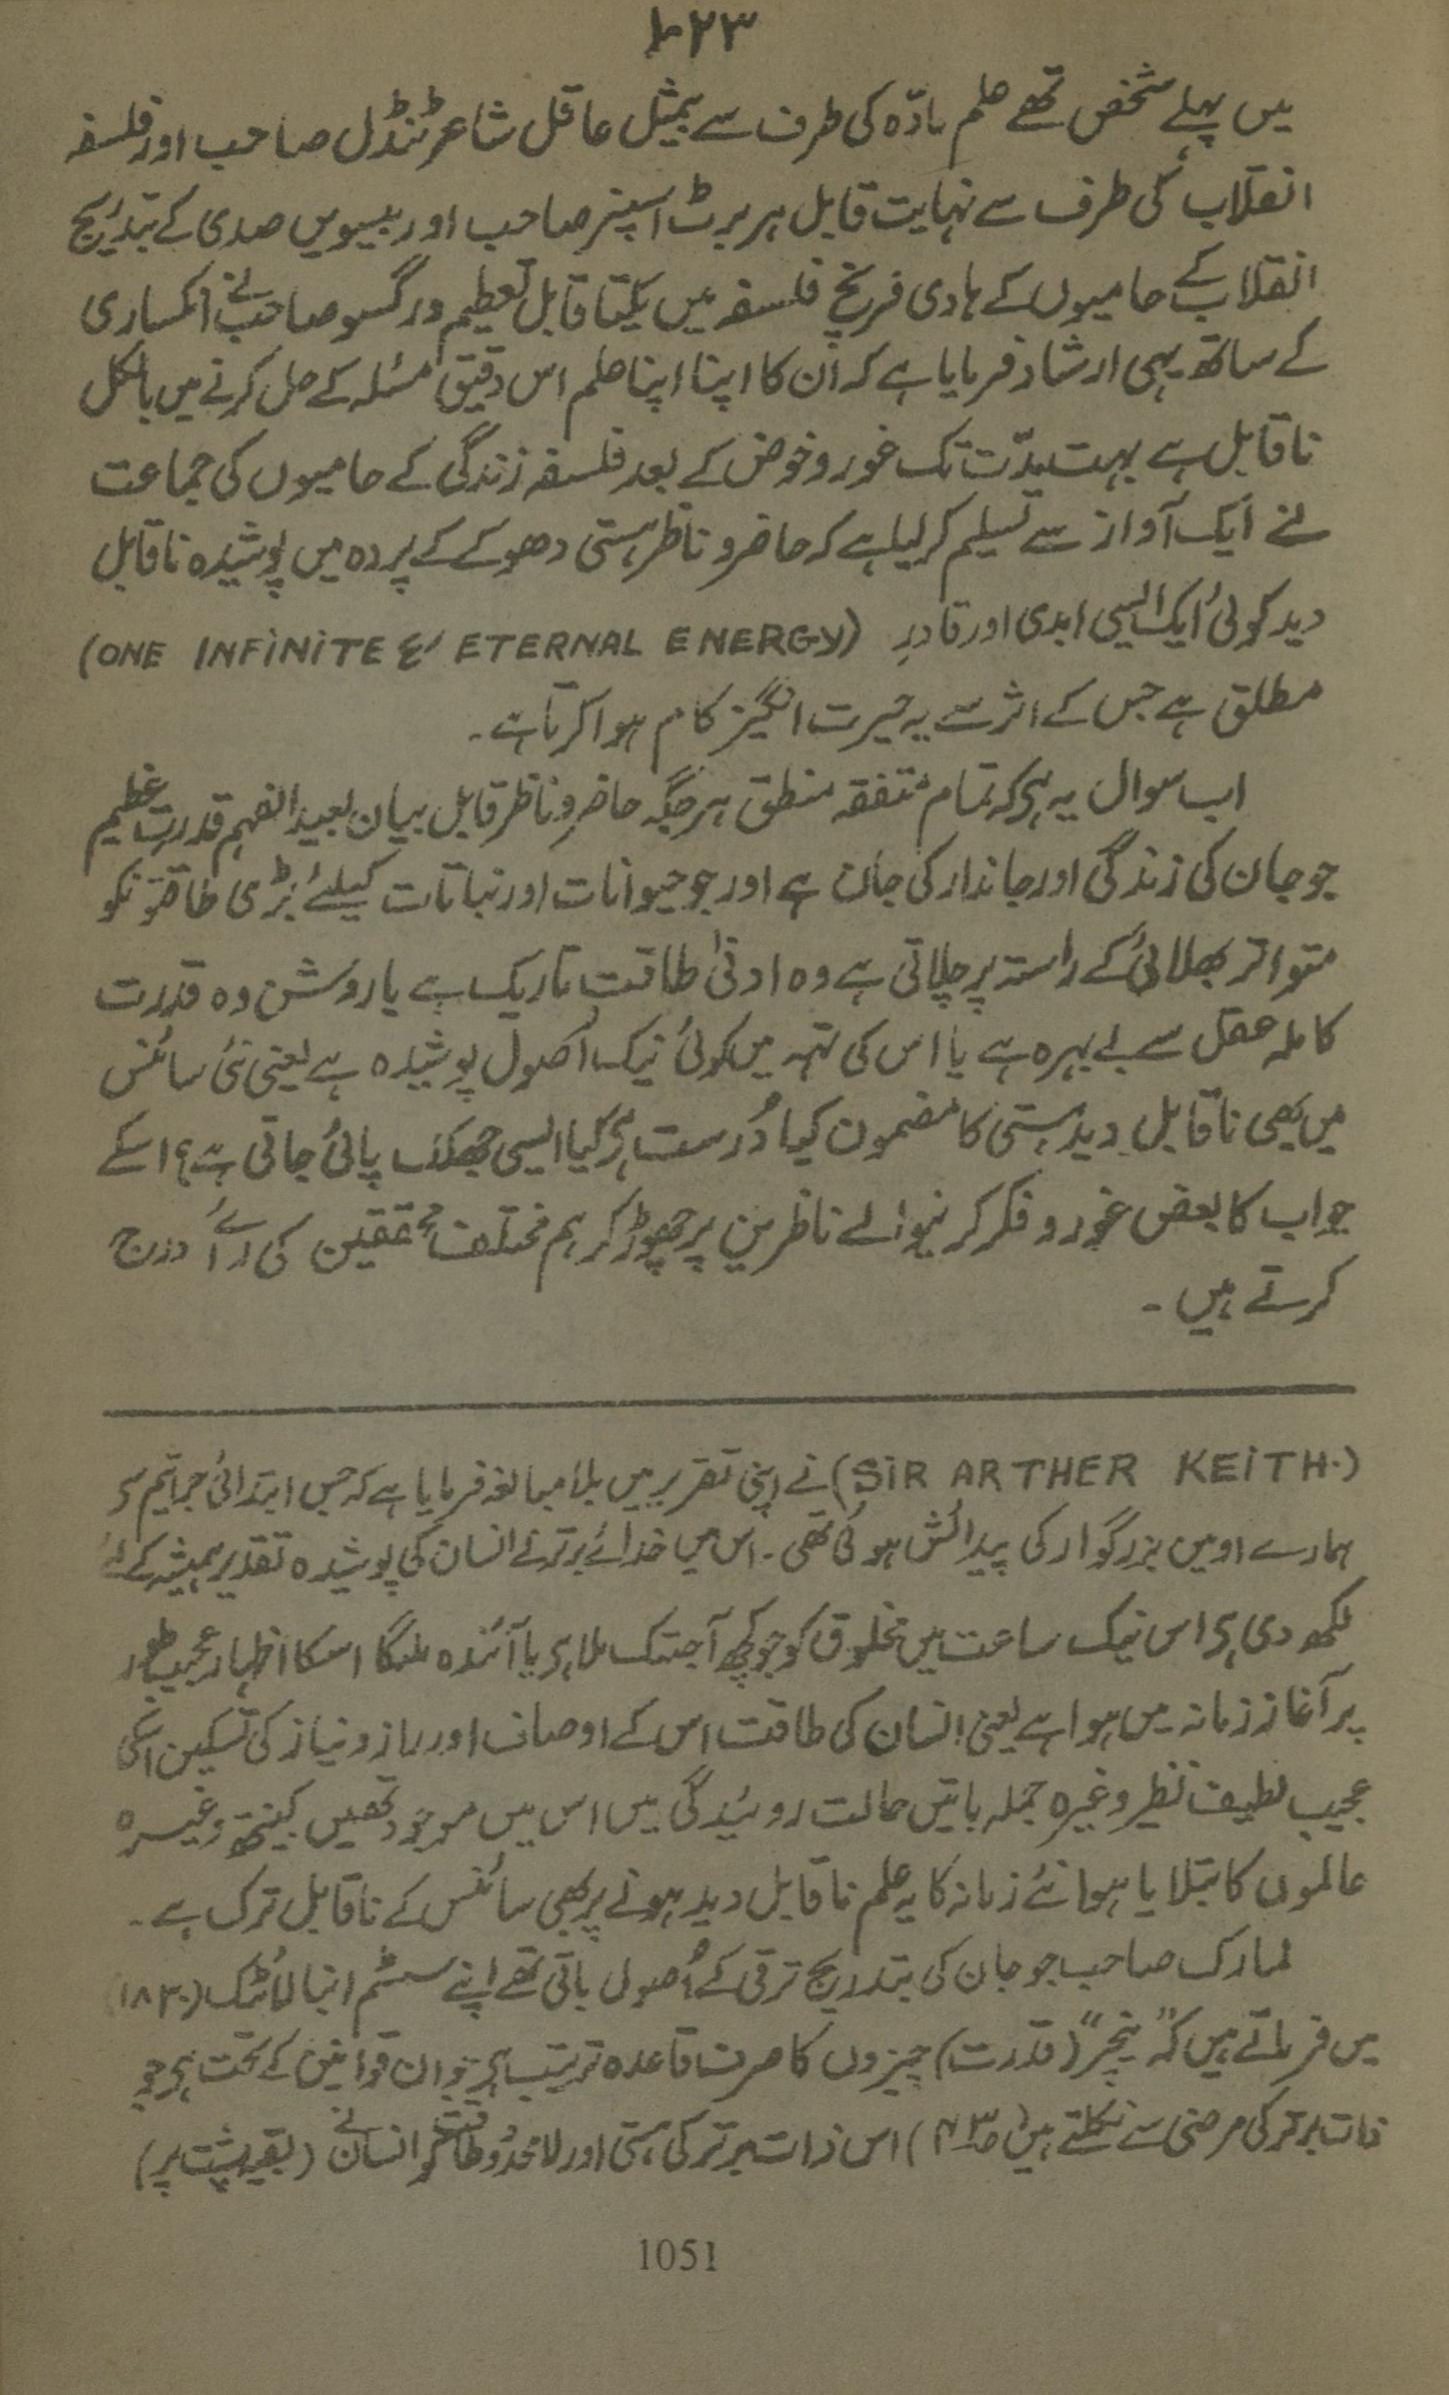 ۱۰۲۳
میں پہلے شخص تھے علم مادّہ کی طرف سے بیمثل عاقل شاعر ٹنڈل صاحب اور فلسفہ
انقلاب کی طرف سے نہایت قابل ہربرٹ اسپنسر صاحب اور بیسویں صدی کے بتدریج
انقلاب کے حامیوں کے ہادی فرنچ فلسفہ میں یکتا قابل تعظیم درگسو صاحب نے انکساری
کے ساتھ یہی ارشاد فرمایا ہے کہ اُن کا اپنا اپنا علم اس دقیق مسئلہ کے حل کرنے میں بالکل
ناقابل ہے بہت مدّت تک غور و خوض کے بعد فلسفہ زندگی کے حامیوں کی جماعت
نے ایک آواز سے تسلیم کر لیا ہے کہ حاضر و ناظر ہستی دھوکے کے پردہ میں پوشیدہ ناقابل
دید کوئی ایک ایسی ابدی اور قادرِ (ONE INFINITE & ETERNAL ENERGY)
مطلق ہے جس کے اثر سے یہ حیرت انگیز کام ہوا کرتا ہے۔
اب سوال یہ ہی کہ تمام متفقہ منطق ہر جگہ حاضر و ناظر قابل بیان بعید الفہم قدرت عظیم
جو جان کی زندگی اور جاندار کی جان ہے اور جو حیوانات اور نباتات کیلئے بڑی طاقتونکو
متواتر بھلائی کے راستہ پر چلاتی ہے وہ ادنیٰ طاقت تاریک ہے یا روشن وہ قدرت
کاملہ عقل سے بے بہرہ ہے یا اس کی تہہ میں کوئی نیک اُصول پوشیدہ ہے یعنی نئی سائنس
میں بھی ناقابل دید ہستی کا مضمون کیا دُرست ہی کیا ایسی جھلک پائی جاتی ہے؟ اسکے
جواب کا بعض غور و فکر کرنیوالے ناظرین پر چھوڑ کر ہم مختلف محققین کی رائے درج
کرتے ہیں ۔
(SIR ARTHER KEITH.) نے اپنی تقریر میں بلا مبالغہ فرمایا ہے کہ جس ابتدائی جراثیم سی
ہمارے اومیں بزرگوار کی پیدائش ہوئی تھی ۔ اس میں خدائے برتر نے انسان کی پوشیدہ تقدیر ہمیشہ کے لئے
لکھ دی ہی اس نیک ساعت میں مخلوق کو جو کچھ آجتک ملا ہی یا آئندہ ملیگا اسکا اظہار عجیب طور
پر آغاز زمانہ میں ہوا ہے یعنی انسان کی طاقت اس کے اوصاف اور راز و نیاز کی تسکین اسکی
عجیب لطیف نظر وغیرہ جملہ باتیں حالت روئیدگی میں اس میں موجود تھیں کینتھ وغیرہ
عالموں کا بتلایا ہوا نئے زمانہ کا یہ علم ناقابل دید ہونے پر بھی سائنس کے ناقابل ترک ہے ۔
لمارک صاحب جو جان کی بتدریج ترقی کے اُصول بانی تھے اپنے سسٹم انیالائٹک (۱۸۳۰)
میں فرماتے ہیں کہ "نیچر" (قدرت) چیزوں کا صرف قاعدہ ترتیب ہی جو ان قوانین کے تحت ہی جو
ذات برتر کی مرضی سے نکلتے ہیں (ص۴۳) اس ذات برتر کی ہستی اور لامحدود طاقت کو انسان نے (بقیہ پشت پر)
1051